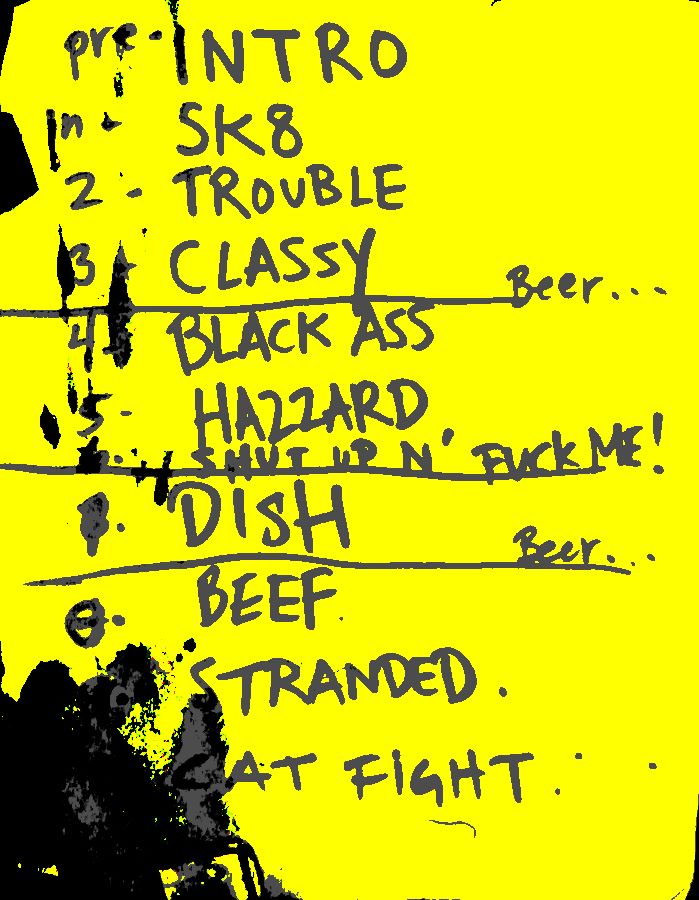 pre- INTRO
SK8
2 - TROUBLE
3 - CLASSY
Beer...
4 BLACK ASS
5- HAZZARD
SHUT UP N' FUCK ME!
DISH
Beer...
BEEF.
STRANDED.
CAT FIGHT.